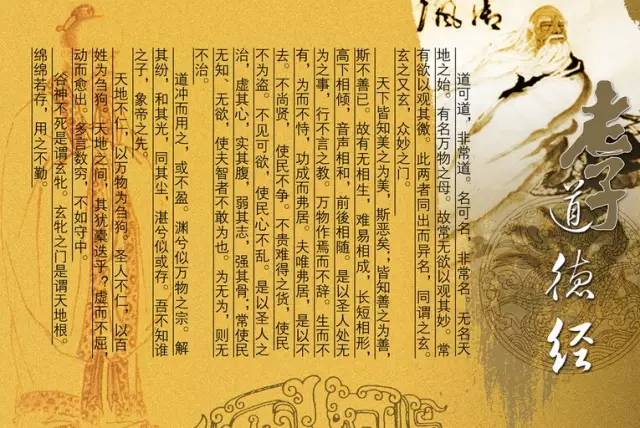 老子
道德经
道可道，非常道。名可名，非常名。无名天
地之始。有名万物之母。故常无欲以观其妙。常
有欲以观其微。此两者同出而异名，同谓之玄。
玄之又玄，众妙之门。
天下皆知美之为美，斯恶矣；皆知善之为善，
斯不善已。故有无相生，难易相成，长短相形，
高下相倾，音声相和，前後相随。是以圣人处无
为之事，行不言之教。万物作焉而不辞。生而不
有，为而不恃，功成而弗居。夫唯弗居，是以不
去。不尚贤，使民不争。不贵难得之货，使民
不为盗。不见可欲，使民心不乱。是以圣人之
治，虚其心，实其腹，弱其志，强其骨；常使民
无知、无欲，使夫智者不敢为也。为无为，则无
不治。
道冲而用之，或不盈。渊兮似万物之宗。解
其纷，和其光，同其尘，湛兮似或存。吾不知谁
之子，象帝之先。
天地不仁，以万物为刍狗。圣人不仁，以百
姓为刍狗。天地之间，其犹橐迭乎？虚而不屈，
动而愈出。多言数穷，不如守中。
谷神不死是谓玄牝。玄牝之门是谓天地根。
绵绵若存，用之不勤。